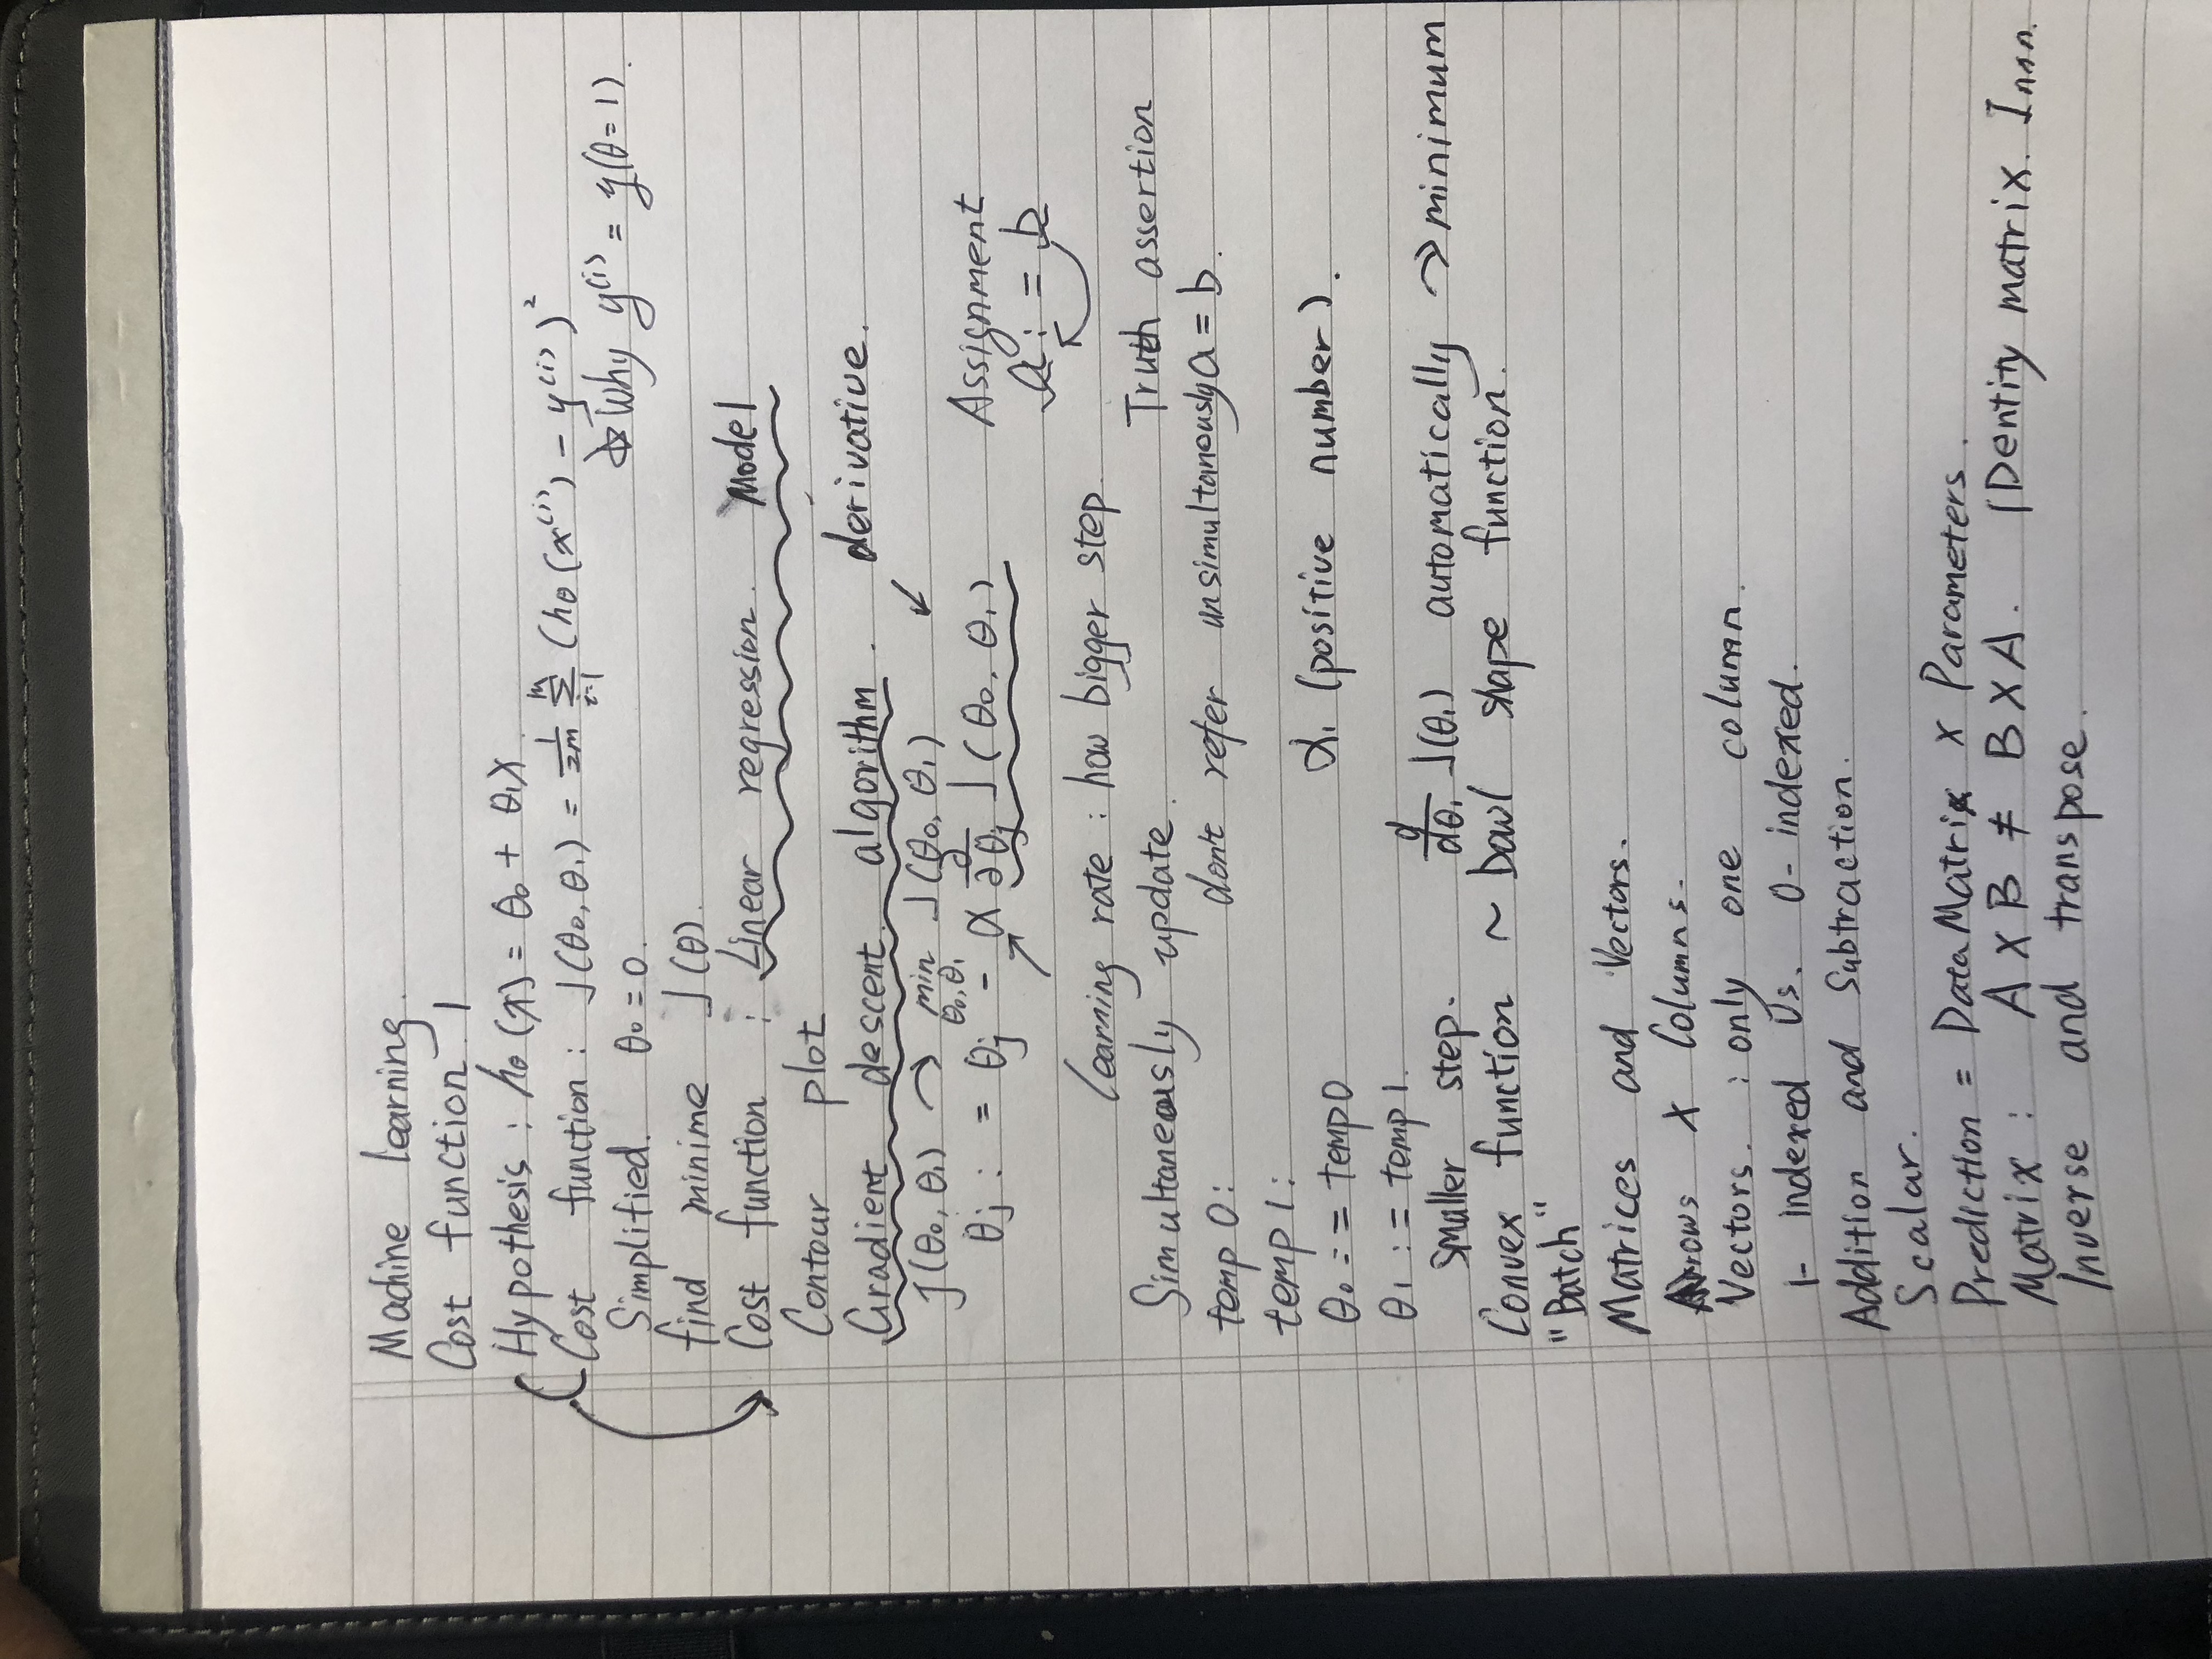 Machine learning.
Cost function 1
Hypothesis : hθ (x) = θ0 + θ1X.
Cost function : J(θ0, θ1) = 1/2m m∑i=1 (hθ (x(i)) - y(i))²
Why y(i) = y(θ=1).
Simplified. θ0 = 0.
find minime J(θ).
Cost function : Linear regression. Model
Contour plot
Gradient descent algorithm. derivative.
J(θ0, θ1) → min θ0,θ1 J(θ0, θ1)
θj : = θj - α ∂/∂θj J(θ0, θ1)
Assignment
a : = b
learning rate : how bigger step
Simultaneously update.
Truth assertion
temp 0: don't refer unsimultanously
a = b.
temp 1:
α. (positive number).
θ0 : = temp0
θ1 : = temp1.
Smaller step. d/dθ1 J(θ1) automatically → minimum
Convex function ~ bowl shape function.
"Batch"
Matrices and Vectors.
rows X Columns.
Vectors. : only one column.
1- indexed Vs. 0- indexed.
Addition and Subtraction.
Scalar.
Prediction = DataMatrix X Parameters.
Matrix : A X B ≠ B X A. IDentity matrix. Inxn.
Inverse and transpose.